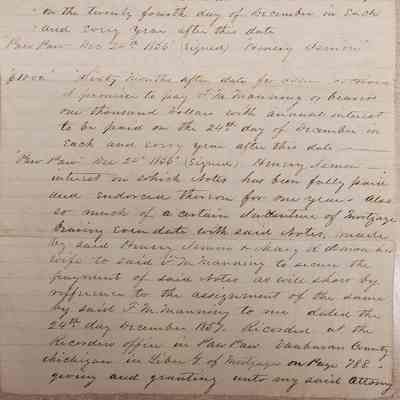 " on the twenty fourth day of December in Each
" and every year after this date
"Paw Paw Dec 24th 1856 (signed) Henry
$1000 " Sixty Months after date for value
I promise to pay F. M. Manning or bearer
one thousand Dollars with annual interest
to be paid on the 24th day of December in
Each and every year after this date —
"Paw Paw" Dec 24th 1856" (signed) Henry
interest on which Notes has been fully paid
and Endorsed thereon for one year — Also
so much of a certain Indenture of Mortgage
Bearing even date with said Notes, made
by said Henry & Mary his
wife to said F. M. Manning to secure the
payment of said Notes as will show by
reference to the assignment of the same
by said F. M. Manning to me dated the
24th day December 1857. Recorded at the
Recorders office in Paw Paw Vanburen County
Michigan in Liber G. of Mortgages on Page 788 -
giving and granting unto my said Attorney